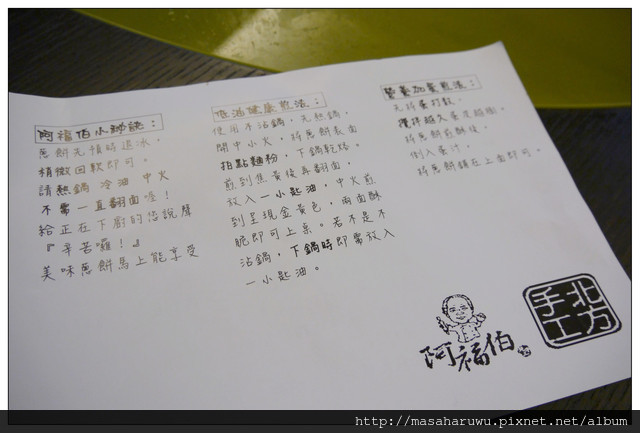 阿福伯小秘訣：
蔥餅先預時退冰，
稍微回軟即可。
請熱鍋 冷油 中火
不需一直翻面喔！
給正在下廚的您說聲
『辛苦囉！』
美味蔥餅馬上能享受
低油健康煎法：
使用不沾鍋，先熱鍋，
開中小火，將蔥餅表面
拍點麵粉，下鍋乾烙。
煎到焦黃後再翻面，
放入一小匙油，中火煎
到呈現金黃色，兩面酥
脆即可上桌。若不是不
沾鍋，下鍋時即需放入
一小匙油。
營養加蛋煎法：
先將蛋打散，
攪拌越久蛋皮越嫩，
將蔥餅煎酥後，
倒入蛋汁，
將蔥餅鋪在上面即可。
阿福伯
手工
北方
http://masaharuwu.pixnet.net/album